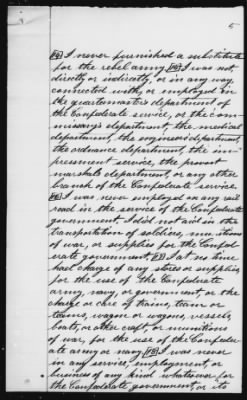 5
I never furnished a substitute
for the rebel army. I was not,
directly or indirectly, or in any way,
connected with, or employed in
the quartermaster's department of
the Confederate service, or the com-
missary's department, the medical
department, the engineers department,
the ordnance department, the im-
pressment service, the provost
marshals department, or any other
branch of the Confederate service.
I was never employed on any rail
road in the service of the Confederate
government. I did not aid in the
transportation of soldiers, munitions
of war, or supplies for the Confed-
erate government. I at no time
had charge of any stores or supplies
for the use of the Confederate
army, navy, or government, or the
charge or care of trains, team or
teams, wagon or wagons, vessels,
boats, or other craft, or munitions
of war, for the use of the Confeder-
ate army or navy. I was never
in any service, employment, or
business of any kind whatsoever for
the Confederate government or its